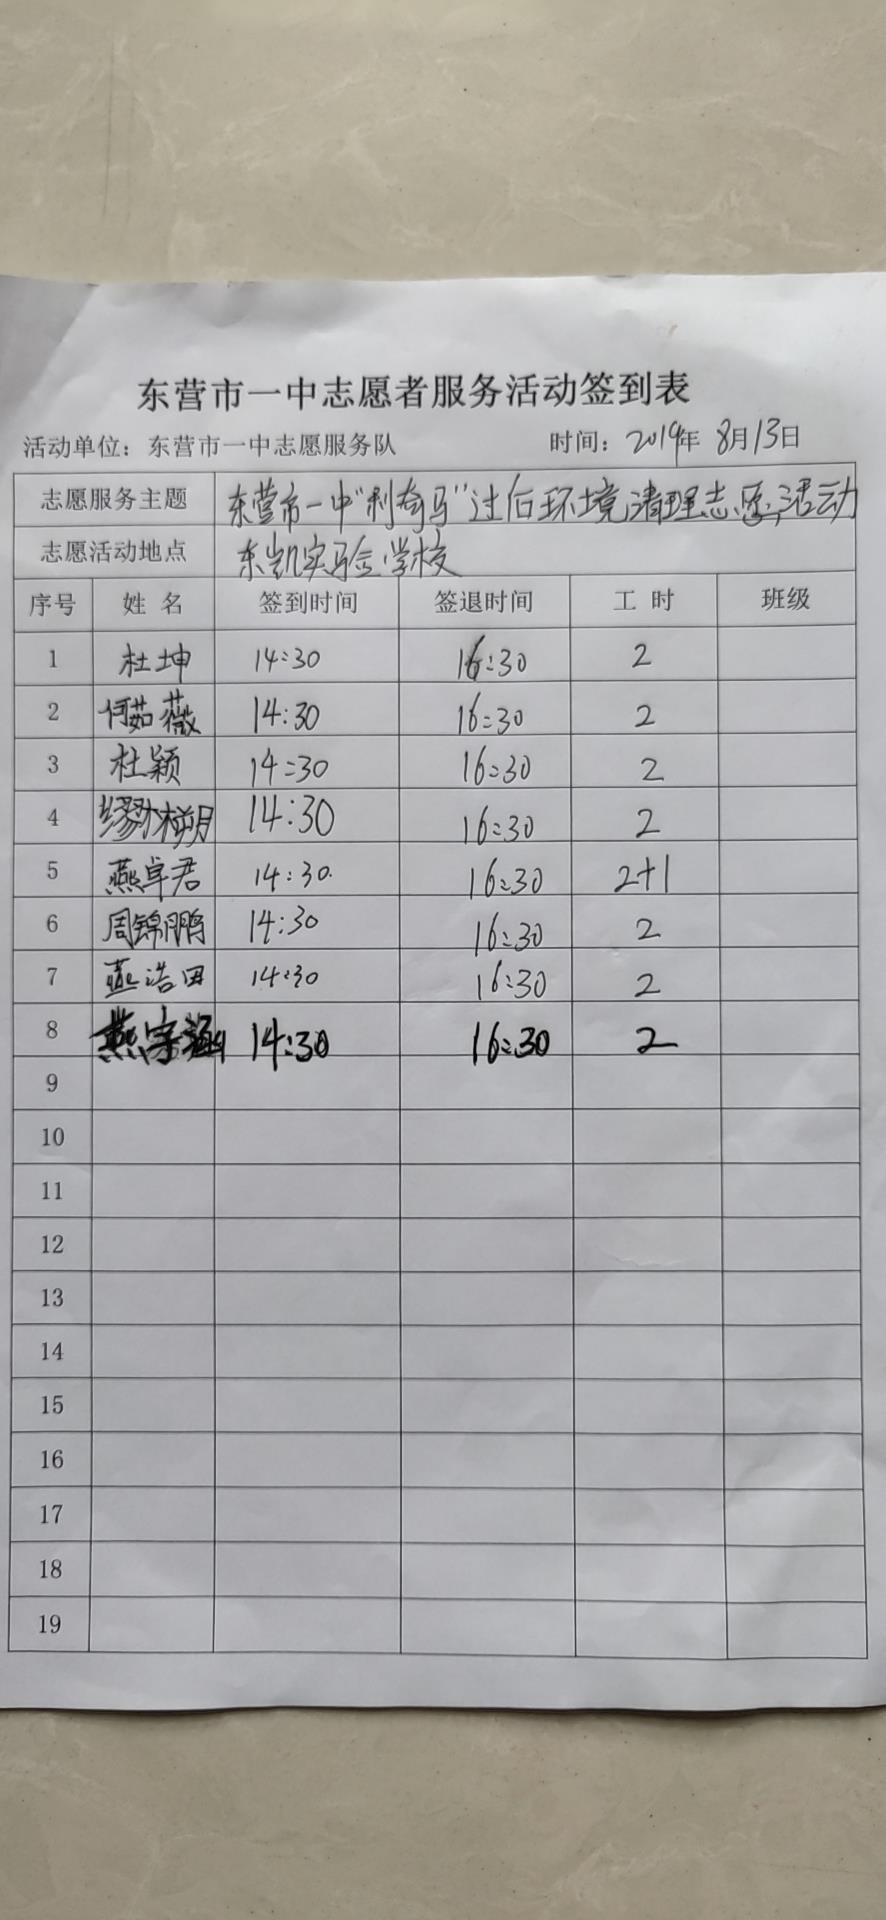 东营市一中志愿者服务活动签到表
活动单位：东营市一中志愿服务队 时间：2019年 8月13日
志愿服务主题 东营市一中“利奇马”过后环境清理志愿活动
志愿活动地点 东凯实验学校
序号 姓名 签到时间 签退时间 工时 班级
1 杜坤 14:30 16:30 2
2 何茹薇 14:30 16:30 2
3 杜颖 14:30 16:30 2
4 14:30 16:30 2
5 燕卓君 14:30. 16:30 2+1
6 周锦鹏 14:30 16:30 2
7 燕浩田 14:30 16:30 2
8 燕宇涵 14:30 16:30 2
9
10
11
12
13
14
15
16
17
18
19